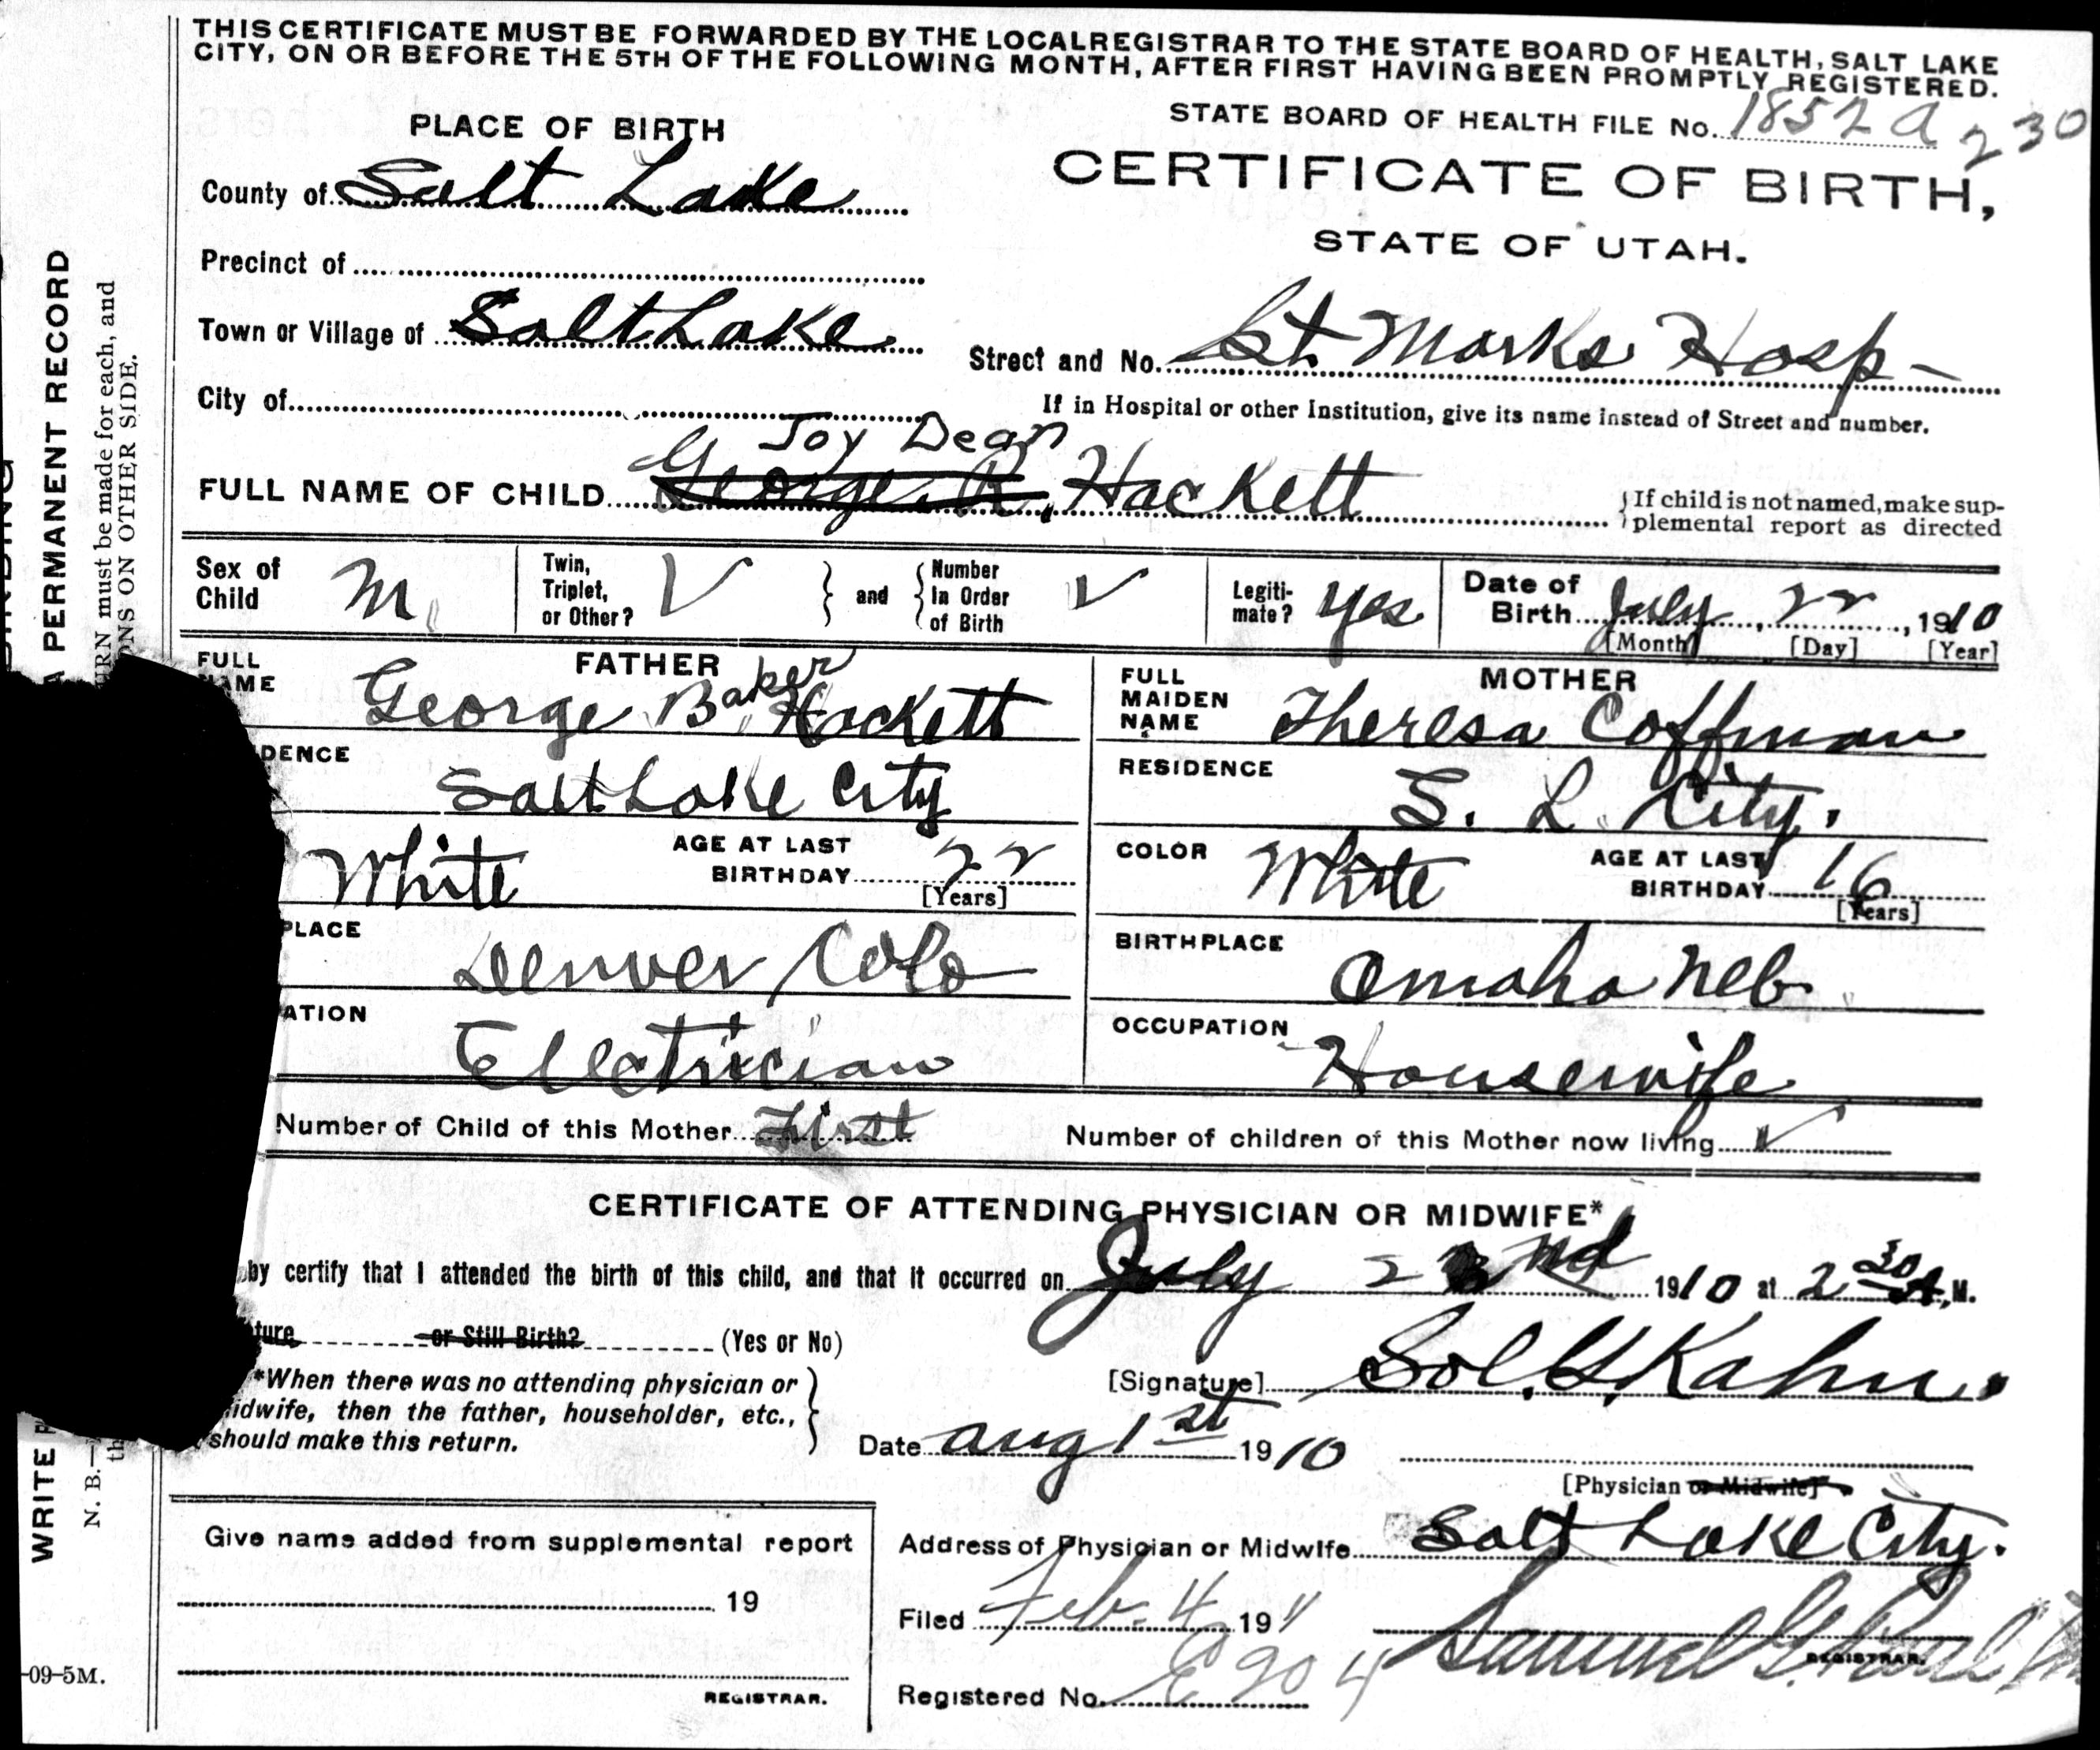 THIS CERTIFICATE MUST BE FORWARDED BY THE LOCAL REGISTRAR TO THE STATE BOARD OF HEALTH, SALT LAKE
CITY, ON OR BEFORE THE 5TH OF THE FOLLOWING MONTH, AFTER FIRST HAVING BEEN PROMPTLY REGISTERED.
STATE BOARD OF HEALTH FILE No. 1852 a 230
PLACE OF BIRTH
CERTIFICATE OF BIRTH,
STATE OF UTAH.
County of Salt Lake
Precinct of
Town or Village of Salt Lake
Street and No. St. Marks Hosp -
City of
If in Hospital or other Institution, give its name instead of Street and number.
Joy Dean
FULL NAME OF CHILD George R. Hackett
{If child is not named, make sup-
plemental report as directed
Sex of Child M.
Twin, Triplet, or Other? V } and { Number In Order of Birth V
Legiti-mate? Yes
Date of Birth July, 22, 1910
[Month] [Day] [Year]
FATHER
FULL NAME George Baker Hackett
DENCE Salt Lake City
White AGE AT LAST BIRTHDAY 22
[Years]
PLACE Denver, Colo
ATION Electrician
MOTHER
FULL MAIDEN NAME Theresa Coffman
RESIDENCE S. L. City.
COLOR White AGE AT LAST BIRTHDAY 16
[Years]
BIRTHPLACE Omaha Neb
OCCUPATION Housewife
Number of Child of this Mother First
Number of children of this Mother now living V
CERTIFICATE OF ATTENDING PHYSICIAN OR MIDWIFE*
by certify that I attended the birth of this child, and that it occurred on July 22nd 1910 at 2 30 A. M.
ture or Still Birth? (Yes or No)
*When there was no attending physician or
idwife, then the father, householder, etc., }
should make this return.
[Signature] Sol. G. Kahn.
Date Aug 1st 1910
[Physician or Midwife]
Give name added from supplemental report
19
REGISTRAR.
Address of Physician or Midwife Salt Lake City.
Filed Feb. 4 1911
Samuel G. Paul
REGISTRAR.
Registered No. E 904
-09-5M.
A PERMANENT RECORD
URN must be made for each, and
ONS ON OTHER SIDE.
WRITE
N. B.—
th